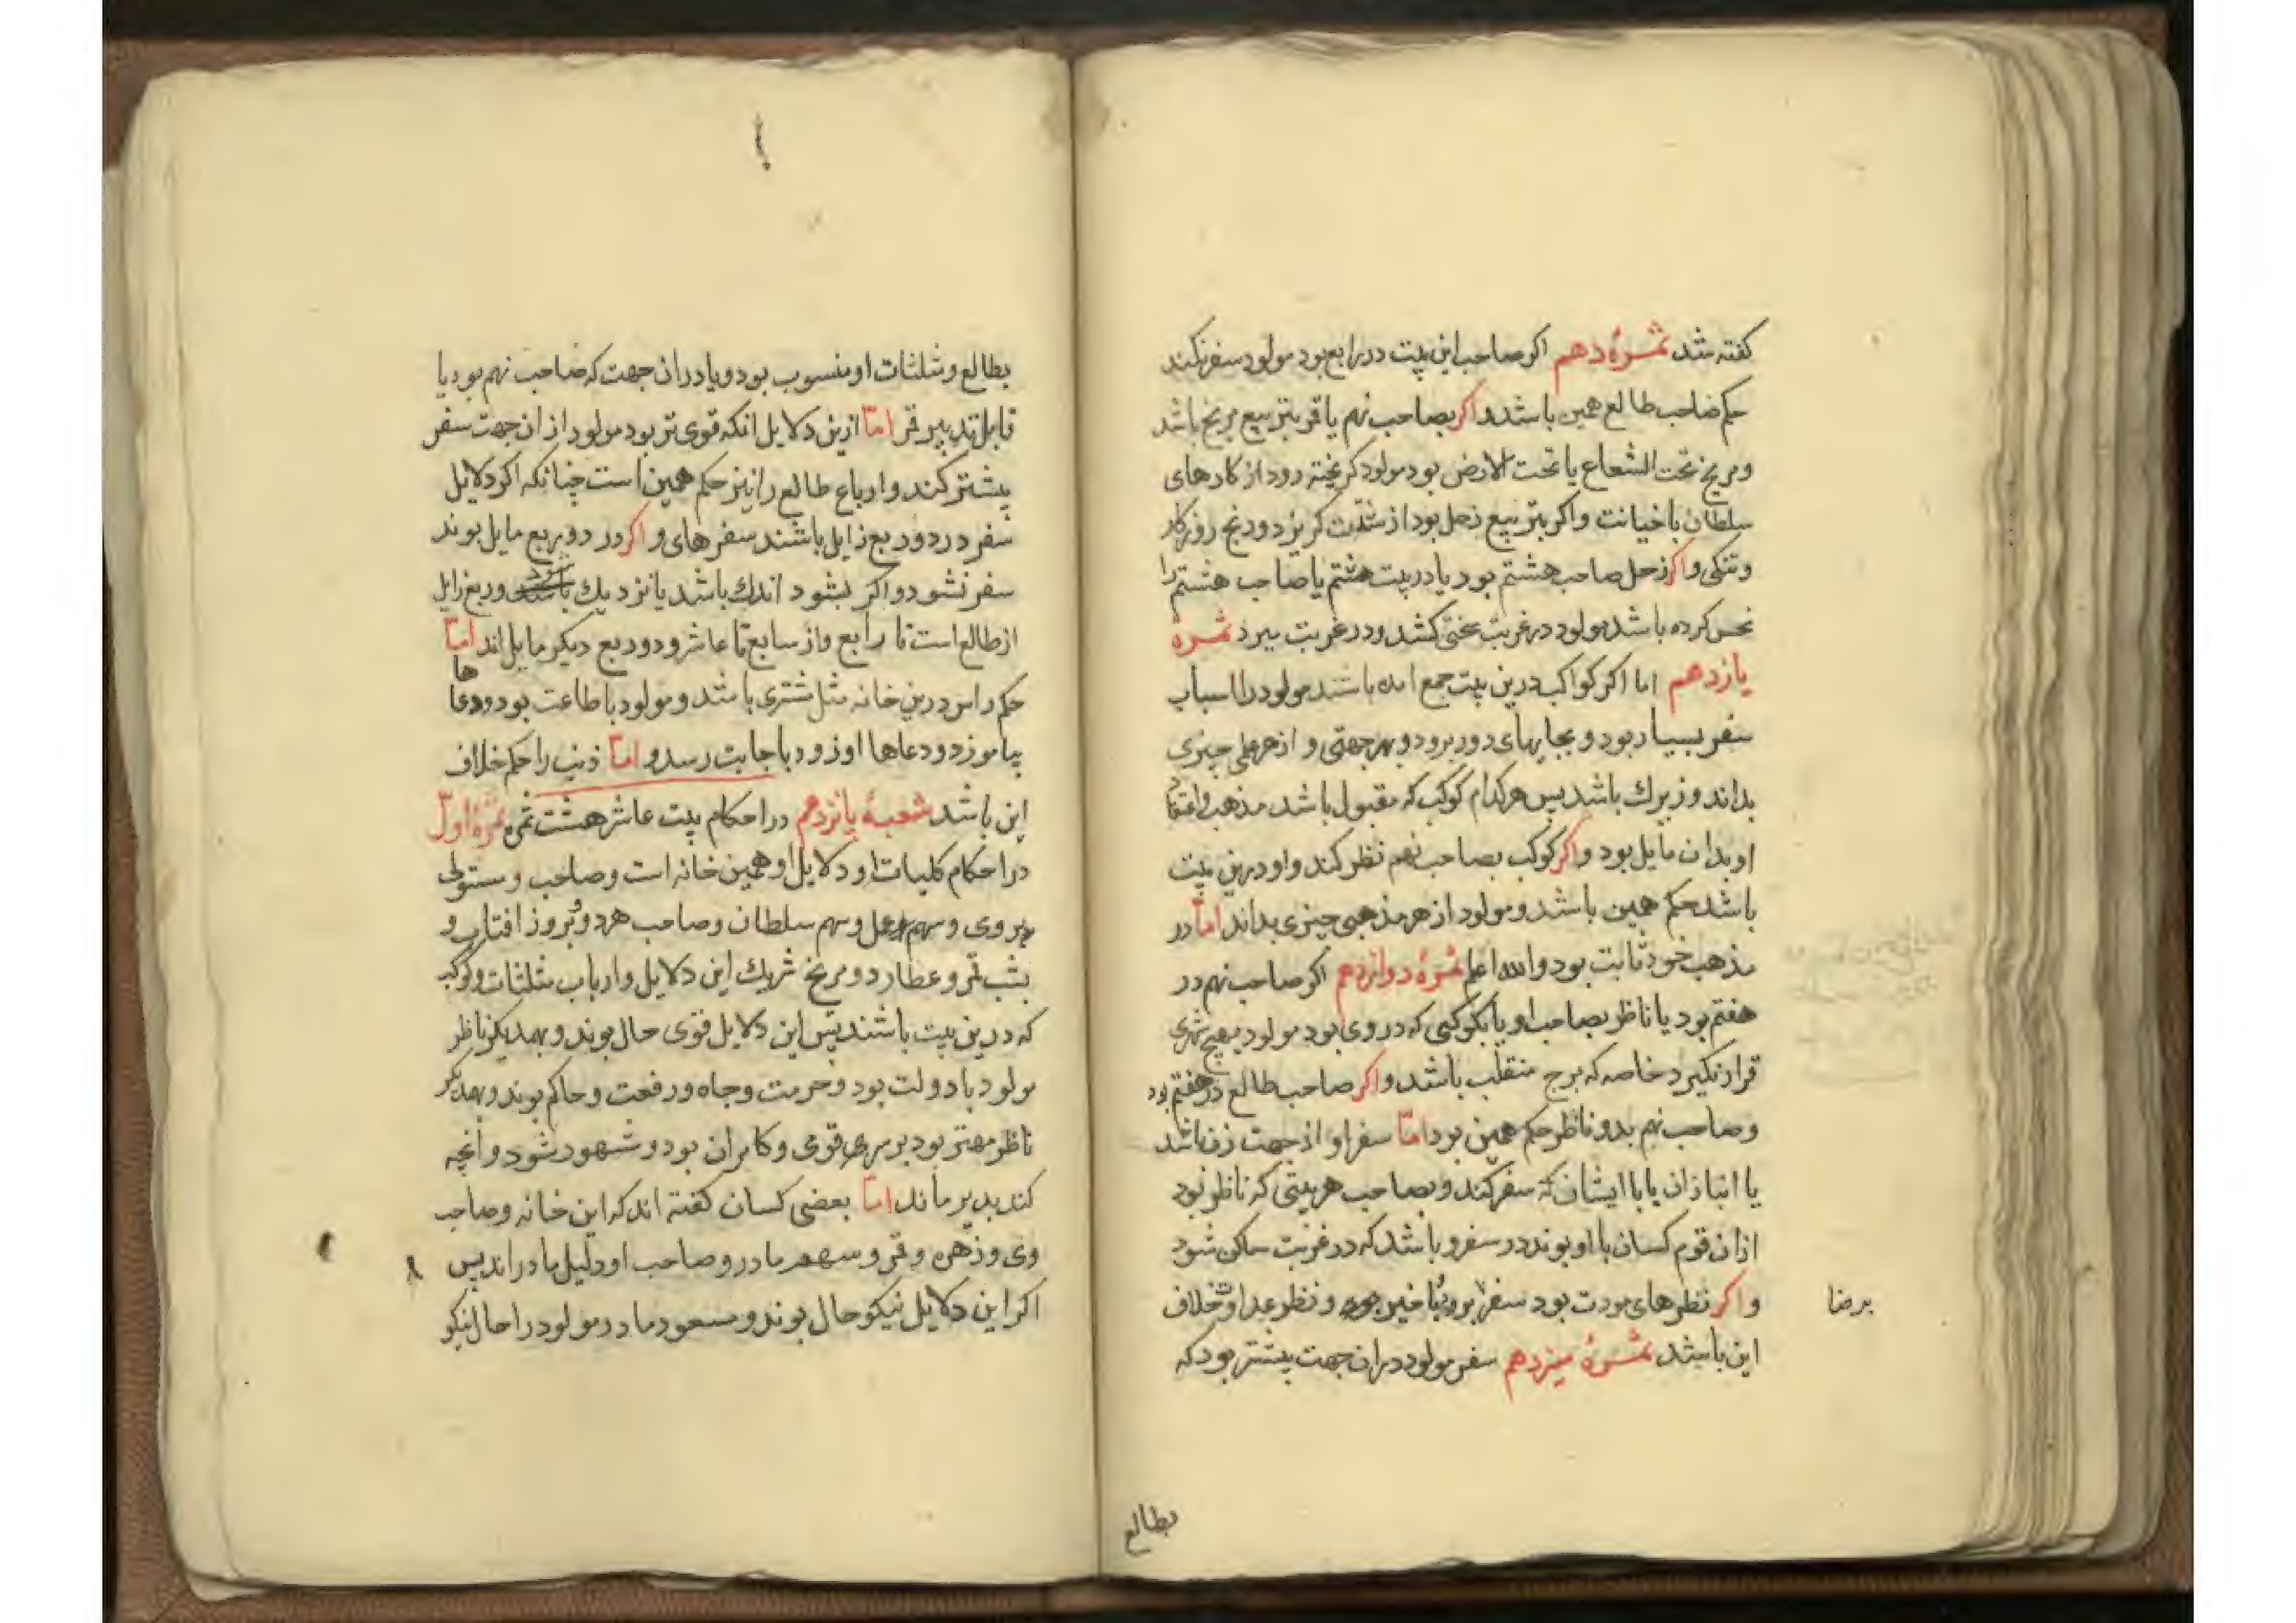 کفته شد ثمرهٔ دهم اکر صاحب این بیت در رابع بود مولود سفر نکند
حکم صاحب طالع همین باشد و اکر بصاحب نهم یا قمر بتربیع مریخ باشد
و مریخ تحت الشعاع یا تحت الارض بود مولود کریخته رود از کارهای
سلطان با خیانت و اکر بتربیع زحل بود از شدّت کریزد و رنج روزکار
و تنکی و اکر زحل صاحب هشتم بود یا در بیت هشتم یا صاحب هشتم را
نحس کرده باشد مولود در غربت سختی کشد و در غربت میرد ثمرهٔ
یازدهم اما اکر کواکب درین بیت جمع امده باشند مولود را اسباب
سفر بسیار بود و بجایهای دور برود و بهر جهتی و از هر علمی چیزی
بداند و زیرك باشد پس هر کدام کوکب که مقبول باشد مذهب و اعتقاد
او بدان مایل بود و اکر کوکب بصاحب نهم نظر کند و او درین بیت
باشد حکم همین باشد و مولود از هر مذهبی چیزی بداند امّا در
مذهب خود ثابت بود والله اعلم ثمرهٔ دوازدهم اکر صاحب نهم در
هفتم بود یا ناظر بصاحب او یا بکوکبی که در وی بود مولود بهیچ شهری
قرار نکیرد خاصه که برج منقلب باشد و اکر صاحب طالع در هفتم بود
و صاحب نهم بدو ناظر حکم همین بود امّا سفر او از جهت زن باشد
یا انبازان یا با ایشان که سفر کند و بصاحب هر بیتی که ناظر بود
ازان قوم کسان با او بوند در سفر و باشد که در غربت ساکن شود
و اکر نظرهای مودت بود سفر برو و نظر عداوت خلاف
برضا
این باشد ثمرهٔ سیزدهم سفر مولود دران جهت بیشتر بود که
بطالع
بطالع و مثلثات او منسوب بود و یا دران جهت که صاحب نهم بود یا
قابل تدبیر قمر امّا ازین دلایل انکه قوی تر بود مولود ازان جهت سفر
بیشتر کند و ارباع طالع را نیز حکم همین است چنانکه اکر دلایل
سفر در دو ربع زایل باشند سفرهای و اکر در دو ربع مایل بوند
سفر نشود و اکر بشود اندك باشد یا نزدیك بود و ربع زایل
از طالع است تا رابع و از سابع تا عاشر و دو ربع دیکر مایل اند امّا
حکم راس درین خانه مثل مشتری باشد و مولود با طاعت بود و دعاها
بیاموزد و دعاها او زود باجابت رسد و امّا ذنب را حکم خلاف
این باشد شعبهٔ پانزدهم در احکام بیت عاشر هشت ثمره ثمرهٔ اوّل
در احکام کلیات او دلایل او همین خانه است و صاحب و مستولی
بر وی و سهم عمل و سهم سلطان و صاحب هر دو و بروز افتاب و
بشب قمر و عطارد و مریخ شریك این دلایل و ارباب مثلثات و کوکبی
که درین بیت باشند پس این دلایل قوی حال بوند و بهمدیکر ناظر
مولود با دولت بود و حرمت و جاه و رفعت و حاکم بوند و بهمدیکر
ناظر مهتر بود بر مردی قوی و کامران بود و مشهور شود و انچه
کند بدیر ماند امّا بعضی کسان کفته اند که این خانه و صاحب
وی و زهره و قمر و سهم مادر و صاحب او دلیل مادر اند پس
اکر این دلایل نیکو حال بوند و مسعود مادر مولود را حال نیکو